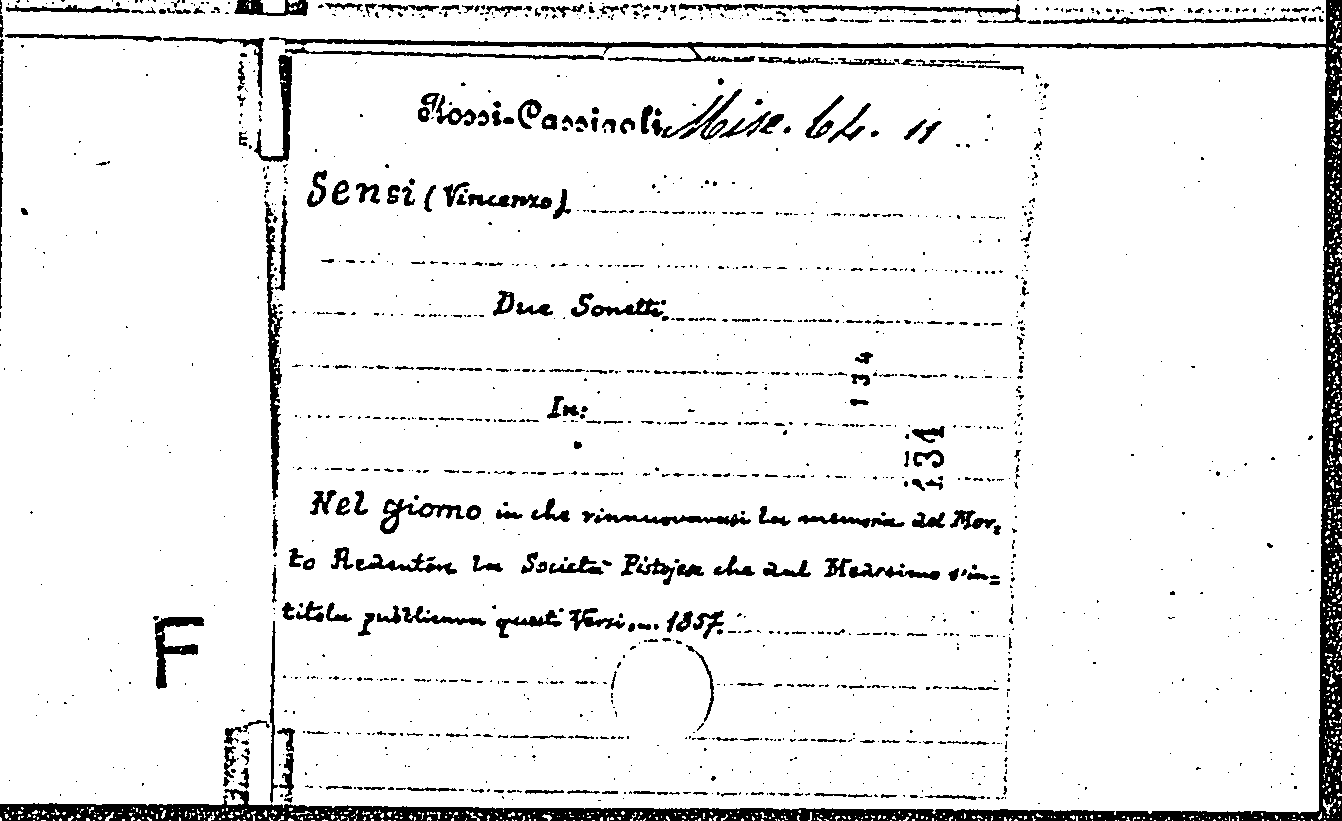 Rossi-Cassigoli Misc. 64. 11
Sensi (Vincenzo)
Due Sonetti.
In:
134
134
Nel giorno in che rinnuovavasi la memoria del Mor-
to Redentore la Società Pistojese che dal Medesimo s'in=
titola pubblicava questi Versi. 1857.
F